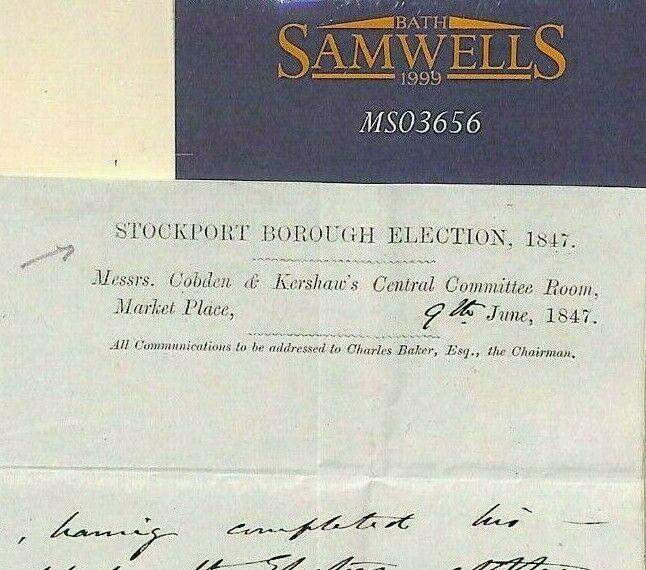 BATH
SAMWELLS
1999
MS03656
STOCKPORT BOROUGH ELECTION, 1847.
Messrs. Cobden & Kershaw's Central Committee Room,
Market Place, 9th June, 1847.
All Communications to be addressed to Charles Baker, Esq., the Chairman.
, having completed his —